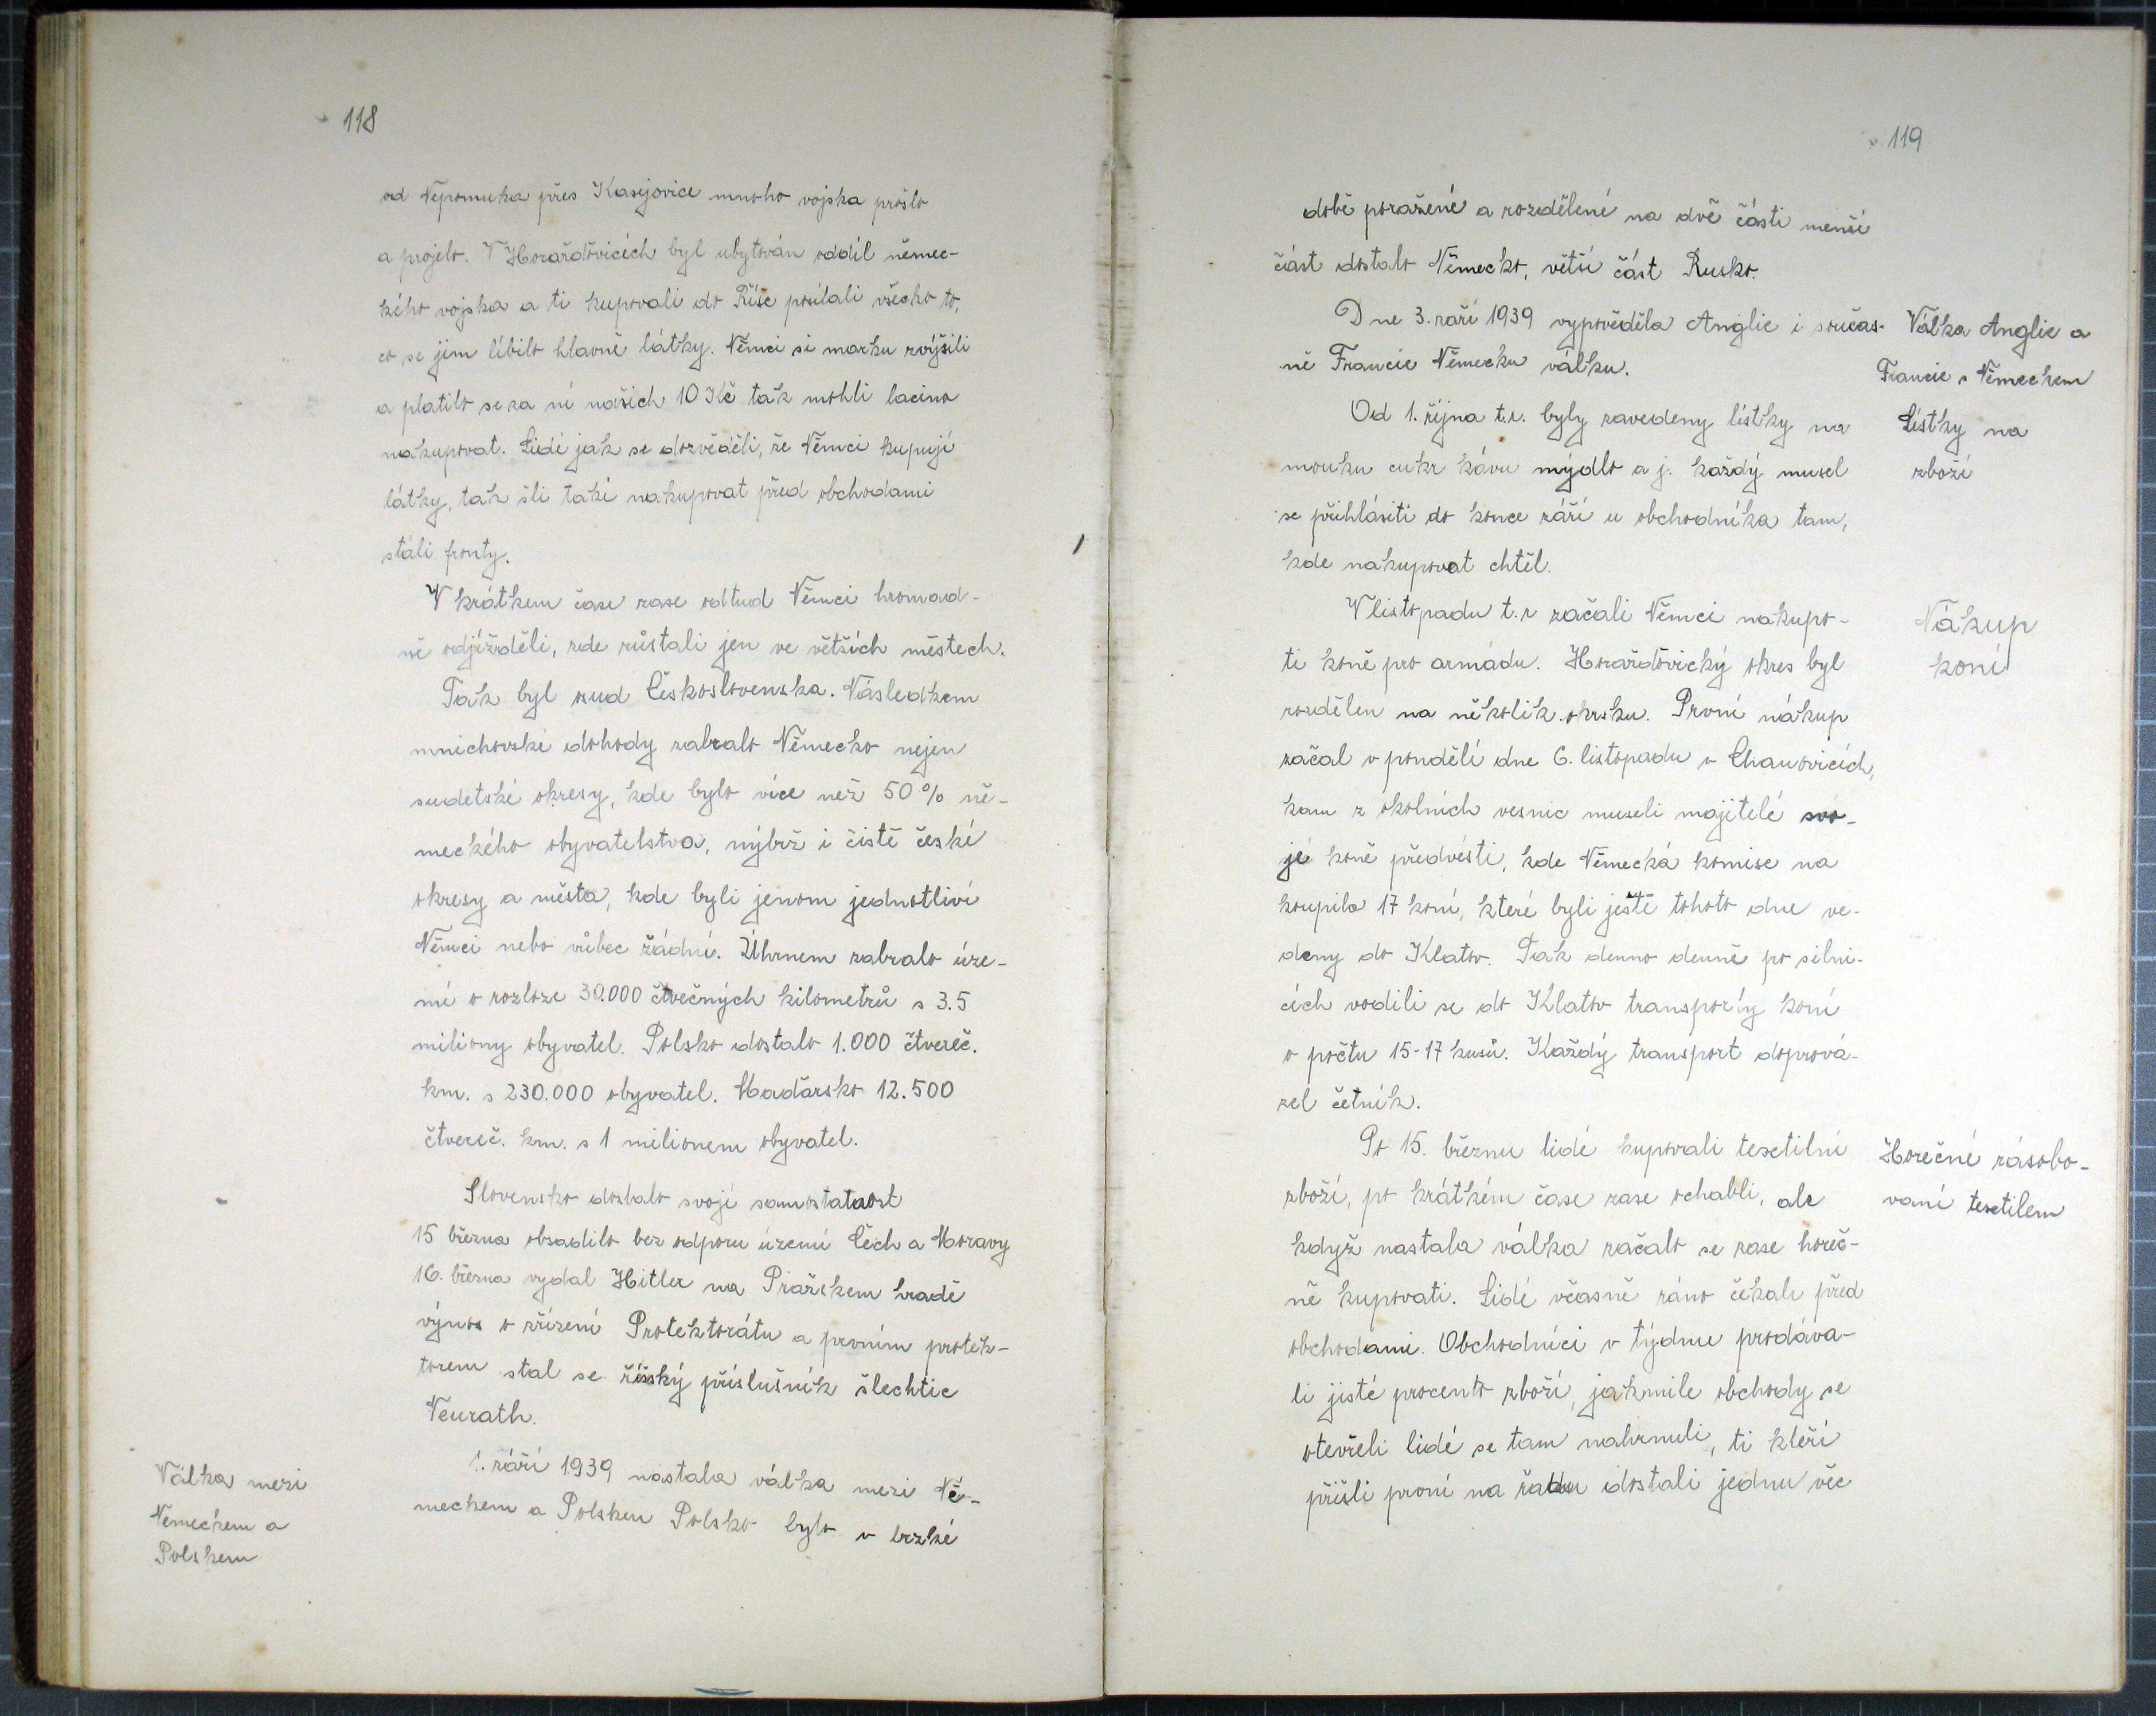 118
od Nepomuka přes Kasejovice mnoho vojska prošlo
a projelo. V Horažďovicích byl ubytován oddíl němec-
kého vojska a ti kupovali do Říše posílali všecko to,
co se jim líbilo hlavně látky. Němci si marku zvýšili
a platilo se za ní našich 10 Kč tak mohli lacino
nakupovat. Lidé jak se dozvěděli, že Němci kupují
látky, tak šli také nakupovat před obchodami
stáli fronty.
V krátkem čase zase odtud Němci hromad-
ně odjížděli, zde zůstali jen ve větších městech.
Tak byl osud Československa. Následkem
mnichovské dohody zabralo Německo nejen
sudetské okresy, kde bylo více než 50% ně-
meckého obyvatelstva, nýbrž i čistě české
okresy a města, kde byli jenom jednotliví
Němci nebo vůbec žádní. Úhrnem zabralo úze-
mí o rozloze 30.000 čtvečných kilometrů s 3.5
miliony obyvatel. Polsko dostalo 1.000 čtvereč.
km. s 230.000 obyvatel. Maďarsko 12.500
čtvereč. km. s 1 milionem obyvatel.
Slovensko dostalo svoji samostatnost
15 března obsadilo bez odporu území Čech a Moravy
16. března vydal Hitler na Pražskem hradě
výnos o zřízení Protektorátu a prvním protek-
torem stal se říšský příslušník šlechtic
Neurath.
1. září 1939 nastala válka mezi Ně-
meckem a Polskem Polsko bylo v brzké
Válka mezi
Německem a
Polskem
119
době poražené a rozdělené na dvě části menší
část dostalo Německo, větší část Rusko.
Dne 3. září 1939 vypověděla Anglie i součas-
ně Francie Německu válku.
Válka Anglie a
Francie s Německem
Od 1. října t.r. byly zavedeny lístky na
mouku cukr kávu mýdlo a j. každý musel
se přihlásiti do konce září u obchodníka tam,
kde nakupovat chtěl.
Lístky na
zboží
V listopadu t.r začali Němci nakupo-
ti koně pro armádu. Horažďovický okres byl
rozdělen na několik okrsku. První nákup
začal v pondělí dne 6. listopadu v Chanovicích,
kam z okolních vesnic museli majitelé svo-
je koně předvésti, kde Německá komise na
koupila 17 koní, které byli ještě tohoto dne ve-
deny do Klatov. Tak denno denně po silni-
cích vodili se do Klatov transporty koní
o počtu 15-17 kusů. Každý transport doprová-
zel četník.
Nákup
koní
Po 15. březnu lidé kupovali texetilní
zboží, po krátkém čase zase ochabli, ale
když nastala válka začalo se zase horeč-
ně kupovati. Lidé včasně ráno čekali před
obchodami. Obchodníci v týdnu prodáva-
li jisté procento zboží, jakmile obchody se
otevřeli lidé se tam nahrnuli, ti kteří
přišli první na řadu dostali jednu věc
Horečné zásobo-
vaní texetilem